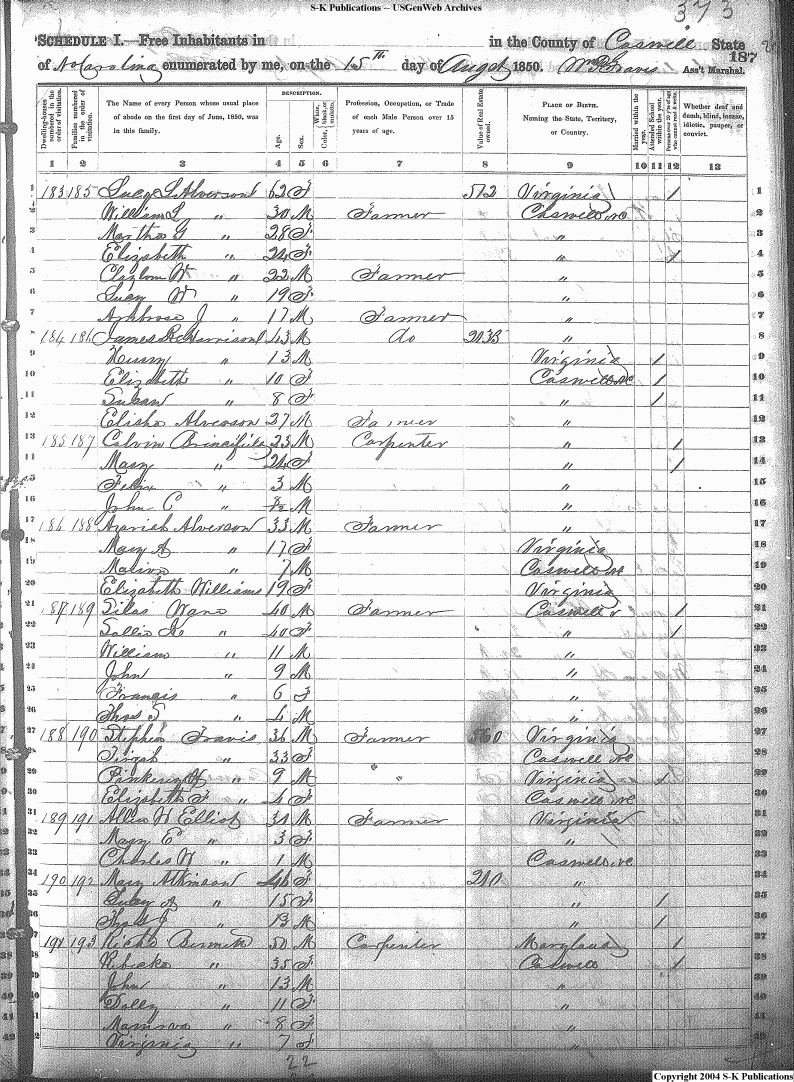 S-K Publications -- USGenWeb Archives
373
SCHEDULE I.—Free Inhabitants in in the County of Caswell State
of No Carolina enumerated by me, on the 15th day of Augst 1850. Ass't Marshal.
187
Dwelling-houses numbered in the order of visitation.
Families numbered in the order of visitation.
The Name of every Person whose usual place of abode on the first day of June, 1850, was in this family.
DESCRIPTION.
Age.
Sex.
Color, White, black, or mulatto.
Profession, Occupation, or Trade of each Male Person over 15 years of age.
Value of Real Estate owned.
PLACE OF BIRTH. Naming the State, Territory, or Country.
Married within the year.
Attended School within the year.
Persons over 20 y'rs of age who cannot read & write.
Whether deaf and dumb, blind, insane, idiotic, pauper, or convict.
1 2 3 4 5 6 7 8 9 10 11 12 13
1 183 185 Lucy L. Alverson 62 F 512 Virginia / 1
2 William L " 30 M Farmer Caswell, NC 2
3 Martha G " 28 F " 3
4 Elizabeth " 24 F " / 4
5 " 22 M Farmer " 5
6 Lucy W " 19 F " 6
7 Ambrose J " 17 M Farmer " 7
8 184 186 James R. Harrison 43 M do " 8
9 Henry " 13 M Virginia / 9
10 Elizabeth " 10 F Caswell NC / 10
11 Susan " 8 F " / 11
12 Elisha Alverson 27 M Farmer " 12
13 185 187 Calvin 23 M Carpenter " / 13
14 Mary " 24 F " / 14
15 Felix " 3 M " 15
16 John C " M " 16
17 186 188 Azariah Alverson 33 M Farmer " 17
18 Mary A " 17 F Virginia 18
19 " 7 M Caswell NC 19
20 Elizabeth Williams 19 F Virginia 20
21 187 189 Silas 40 M Farmer Caswell / 21
22 " 40 F " / 22
23 William " 11 M " 23
24 John " 9 M " 24
25 Francis " 6 F " 25
26 Thos S " 4 M " 26
27 188 190 Stephen Travis 36 M Farmer 560 Virginia 27
28 Tirzah " 33 F Caswell NC 28
29 " 9 M " Virginia / 29
30 Elizabeth F " 4 F Caswell, NC 30
31 189 191 Elliot 31 M Farmer Virginia 31
32 Mary E " 3 F " 32
33 Charles W " 1 M Caswell, NC 33
34 190 192 Mary Atkinson 46 F 210 " 34
35 Lucy A " 15 F " / 35
36 Thos J " 13 M " / 36
37 191 193 Richd 50 M Carpenter Maryland / 37
38 " 35 F Caswell / 38
39 John " 13 M " 39
40 Dolly " 11 F " 40
41 " 8 F " 41
42 Virginia " 7 F " 42
22
Copyright 2004 S-K Publications